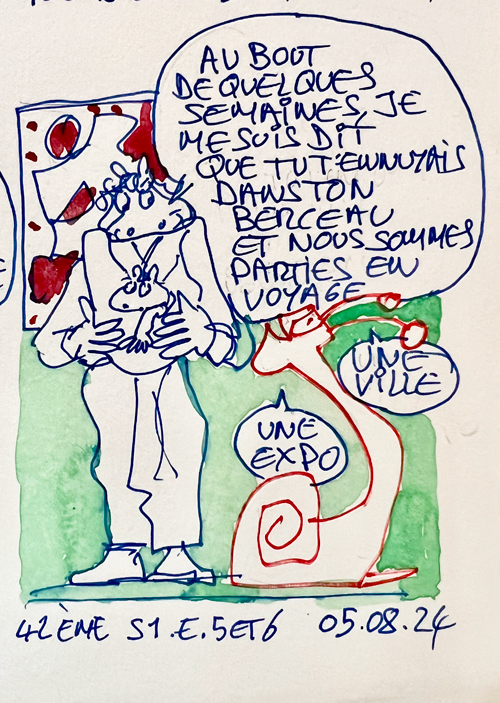 AU BOUT
DE QUELQUES
SEMAINES, JE
ME SUIS DIT
QUE TU T'ENNUYAIS
DANS TON
BERCEAU
ET NOUS SOMMES
PARTIES EN
VOYAGE
UNE
VILLE
UNE
EXPO
42ÈME S1.E.5ET6 05.08.24